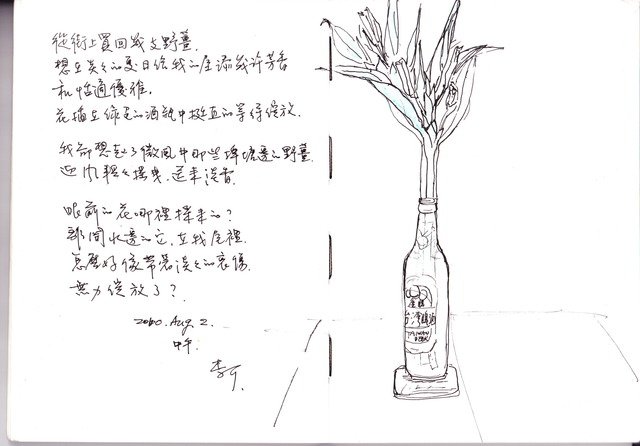 從街上買回幾支野薑.
想在炎炎的夏日給我的屋添幾許芳香
和怡適優雅.
花插在綠色的酒瓶中挺直的等待綻放.
我卻想起了微風中那些埤塘邊的野薑.
迎風輕輕搖曳.送來淡香.
眼前的花哪裡採來的?
郭間水邊的它.在我屋裡.
怎麼好像帶著淡淡的哀傷.
無力綻放了?
2000.Aug.2.
中午.
台灣啤酒
TAIWAN
BEER